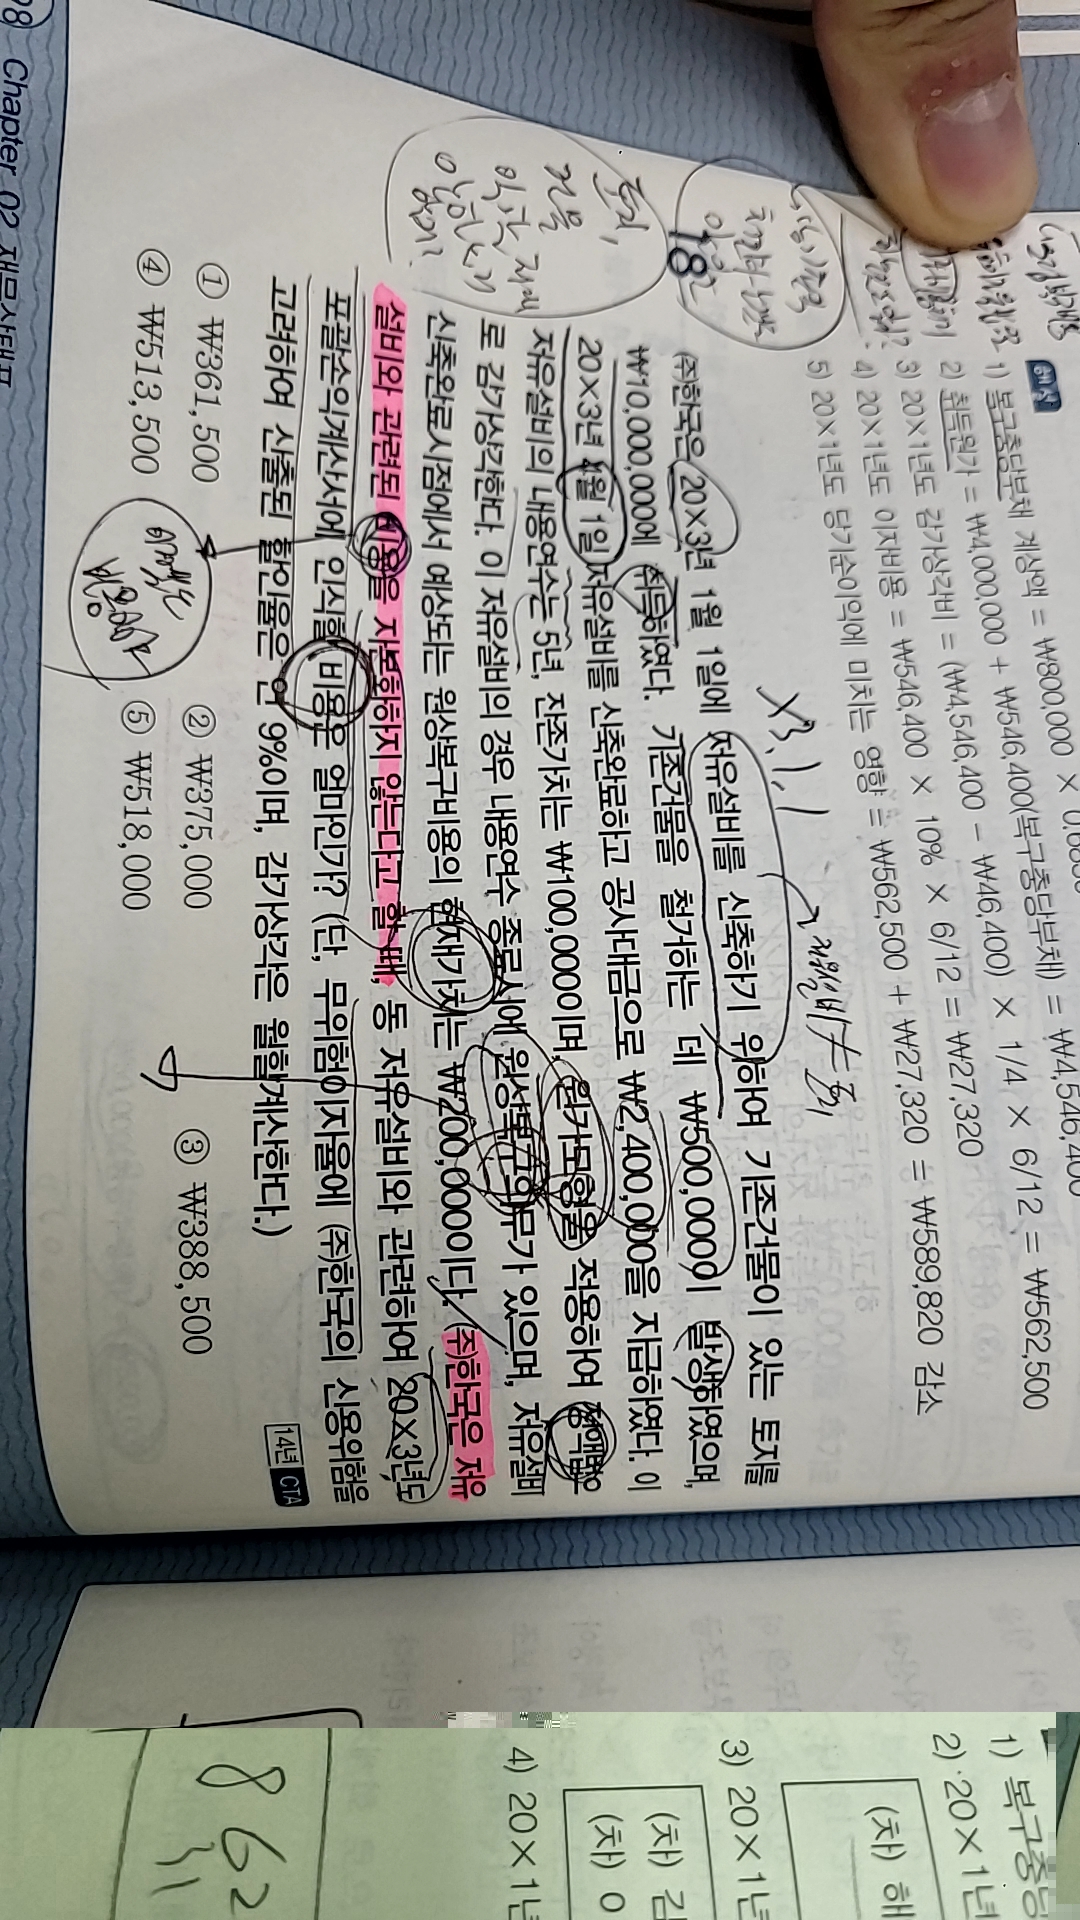 해설
1) 복구충당부채 계상액 = ₩800,000 ×
2) 취득원가 = ₩4,000,000 + ₩546,400(복구충당부채) = ₩4,546,400
3) 20×1년도 감가상각비 = (₩4,546,400 - ₩46,400) × 1/4 × 6/12 = ₩562,500
4) 20×1년도 이자비용 = ₩546,400 × 10% × 6/12 = ₩27,320
5) 20×1년도 당기순이익에 미치는 영향 = ₩562,500 + ₩27,320 = ₩589,820 감소
×3.1.1
18
㈜한국은 20×3년 1월 1일에 저유설비를 신축하기 위하여 기존건물이 있는 토지를
₩10,000,000에 취득하였다. 기존건물을 철거하는 데 ₩500,000이 발생하였으며,
20×3년 4월 1일 저유설비를 신축완료하고 공사대금으로 ₩2,400,000을 지급하였다. 이
저유설비의 내용연수는 5년, 잔존가치는 ₩100,000이며, 원가모형을 적용하여 정액법으
로 감가상각한다. 이 저유설비의 경우 내용연수 종료시에 원상복구의무가 있으며, 저유설비
신축완료시점에서 예상되는 원상복구비용의 현재가치는 ₩200,000이다. ㈜한국은 저유
설비와 관련된 비용을 자본화하지 않는다고 할 때, 동 저유설비와 관련하여 20×3년도
포괄손익계산서에 인식할 비용은 얼마인가? (단, 무위험이자율에 ㈜한국의 신용위험을
고려하여 산출된 할인율은 연 9%이며, 감가상각은 월할계산한다.)
14년 CTA
① ₩361,500 ② ₩375,000 ③ ₩388,500
④ ₩513,500 ⑤ ₩518,000
Chapter 02 재무상태표
1) 복구충당
2) 20×1년
(차)
3) 20×1년
(차) 감
(차)
4) 20×1년
862